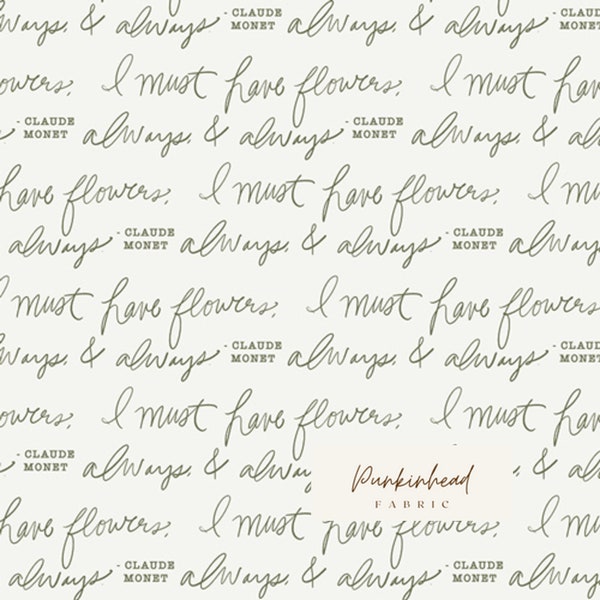 always, & always - CLAUDE MONET always, & always - CLAUDE MONET
flowers, I must have flowers, I must have
- CLAUDE MONET always, & always - CLAUDE MONET always, &
have flowers, I must have flowers, I
always - CLAUDE MONET always, & always - CLAUDE MONET always,
I must have flowers, I must have flowers
always, & always - CLAUDE MONET always, & always - CLAUDE MONET
flowers, I must have flowers, I must have
- CLAUDE MONET always, &
Punkinhead
FABRIC
have flowers, I must have flowers, I
always - CLAUDE MONET always, & always - CLAUDE MONET always,